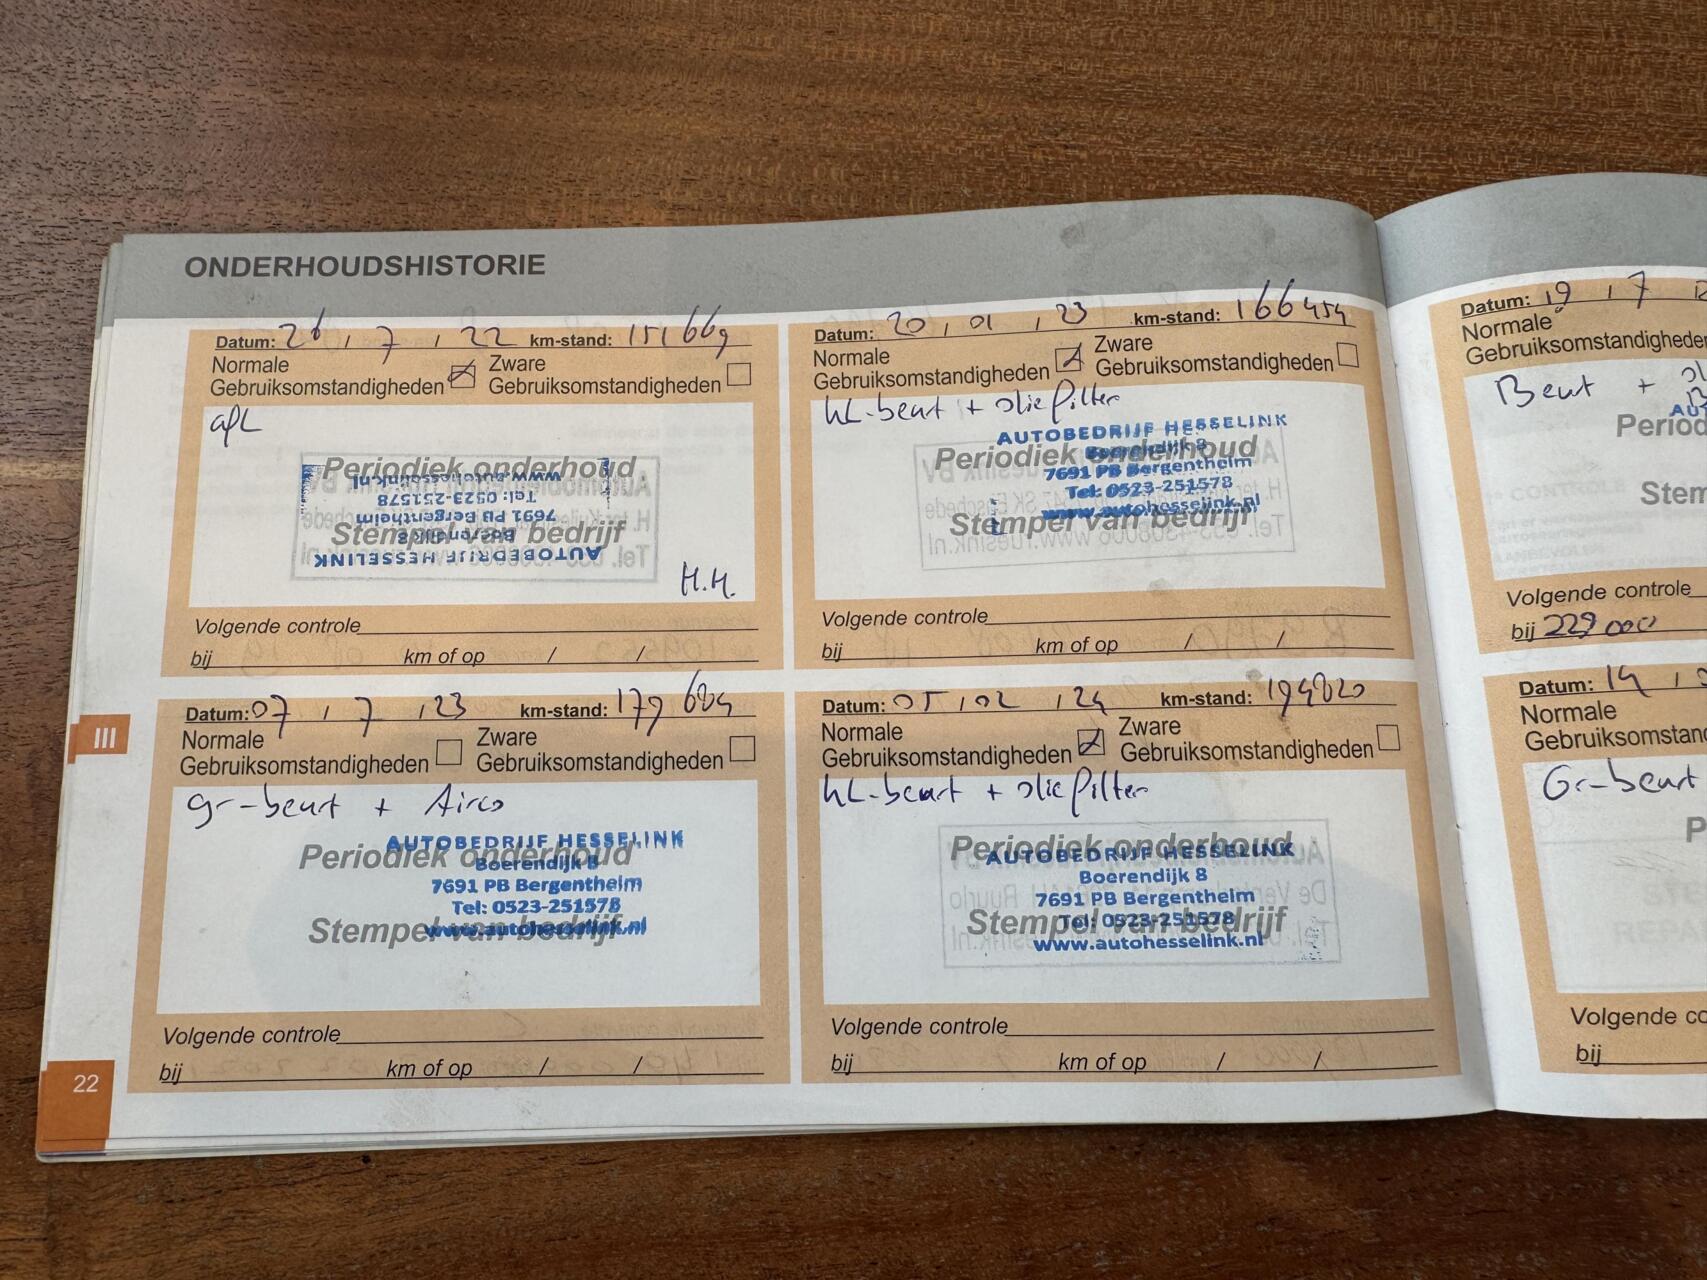 ONDERHOUDSHISTORIE
Datum: 26 / 7 / 22 km-stand: 151669
Normale Gebruiksomstandigheden
Zware Gebruiksomstandigheden
apL
Periodiek onderhoud
Stempel van bedrijf
AUTOBEDRIJF HESSELINK
Boerendijk 8
7691 PB Bergentheim
Tel: 0523-251578
www.autohesselink.nl
H.H.
Volgende controle
bij km of op / /
Datum: 20 / 01 / 23 km-stand: 166454
Normale Gebruiksomstandigheden
Zware Gebruiksomstandigheden
kL-beurt + oliefilter
Periodiek onderhoud
Stempel van bedrijf
AUTOBEDRIJF HESSELINK
Boerendijk 8
7691 PB Bergentheim
Tel: 0523-251578
www.autohesselink.nl
Volgende controle
bij km of op / /
Datum: 07 / 7 / 23 km-stand: 179684
Normale Gebruiksomstandigheden
Zware Gebruiksomstandigheden
gr-beurt + Airco
Periodiek onderhoud
Stempel van bedrijf
AUTOBEDRIJF HESSELINK
Boerendijk 8
7691 PB Bergentheim
Tel: 0523-251578
www.autohesselink.nl
Volgende controle
bij km of op / /
Datum: 05 / 02 / 24 km-stand: 194820
Normale Gebruiksomstandigheden
Zware Gebruiksomstandigheden
kL-beurt + oliefilter
Periodiek onderhoud
Stempel van bedrijf
AUTOBEDRIJF HESSELINK
Boerendijk 8
7691 PB Bergentheim
Tel: 0523-251578
www.autohesselink.nl
Volgende controle
bij km of op / /
III
22
Datum: 19 / 7
Normale
Gebruiksomstandigheden
Beurt +
Period
Stem
Volgende controle
bij 229000
Datum: 14 /
Normale
Gebruiksomstand
Gr-beurt
P
Volgende co
bij